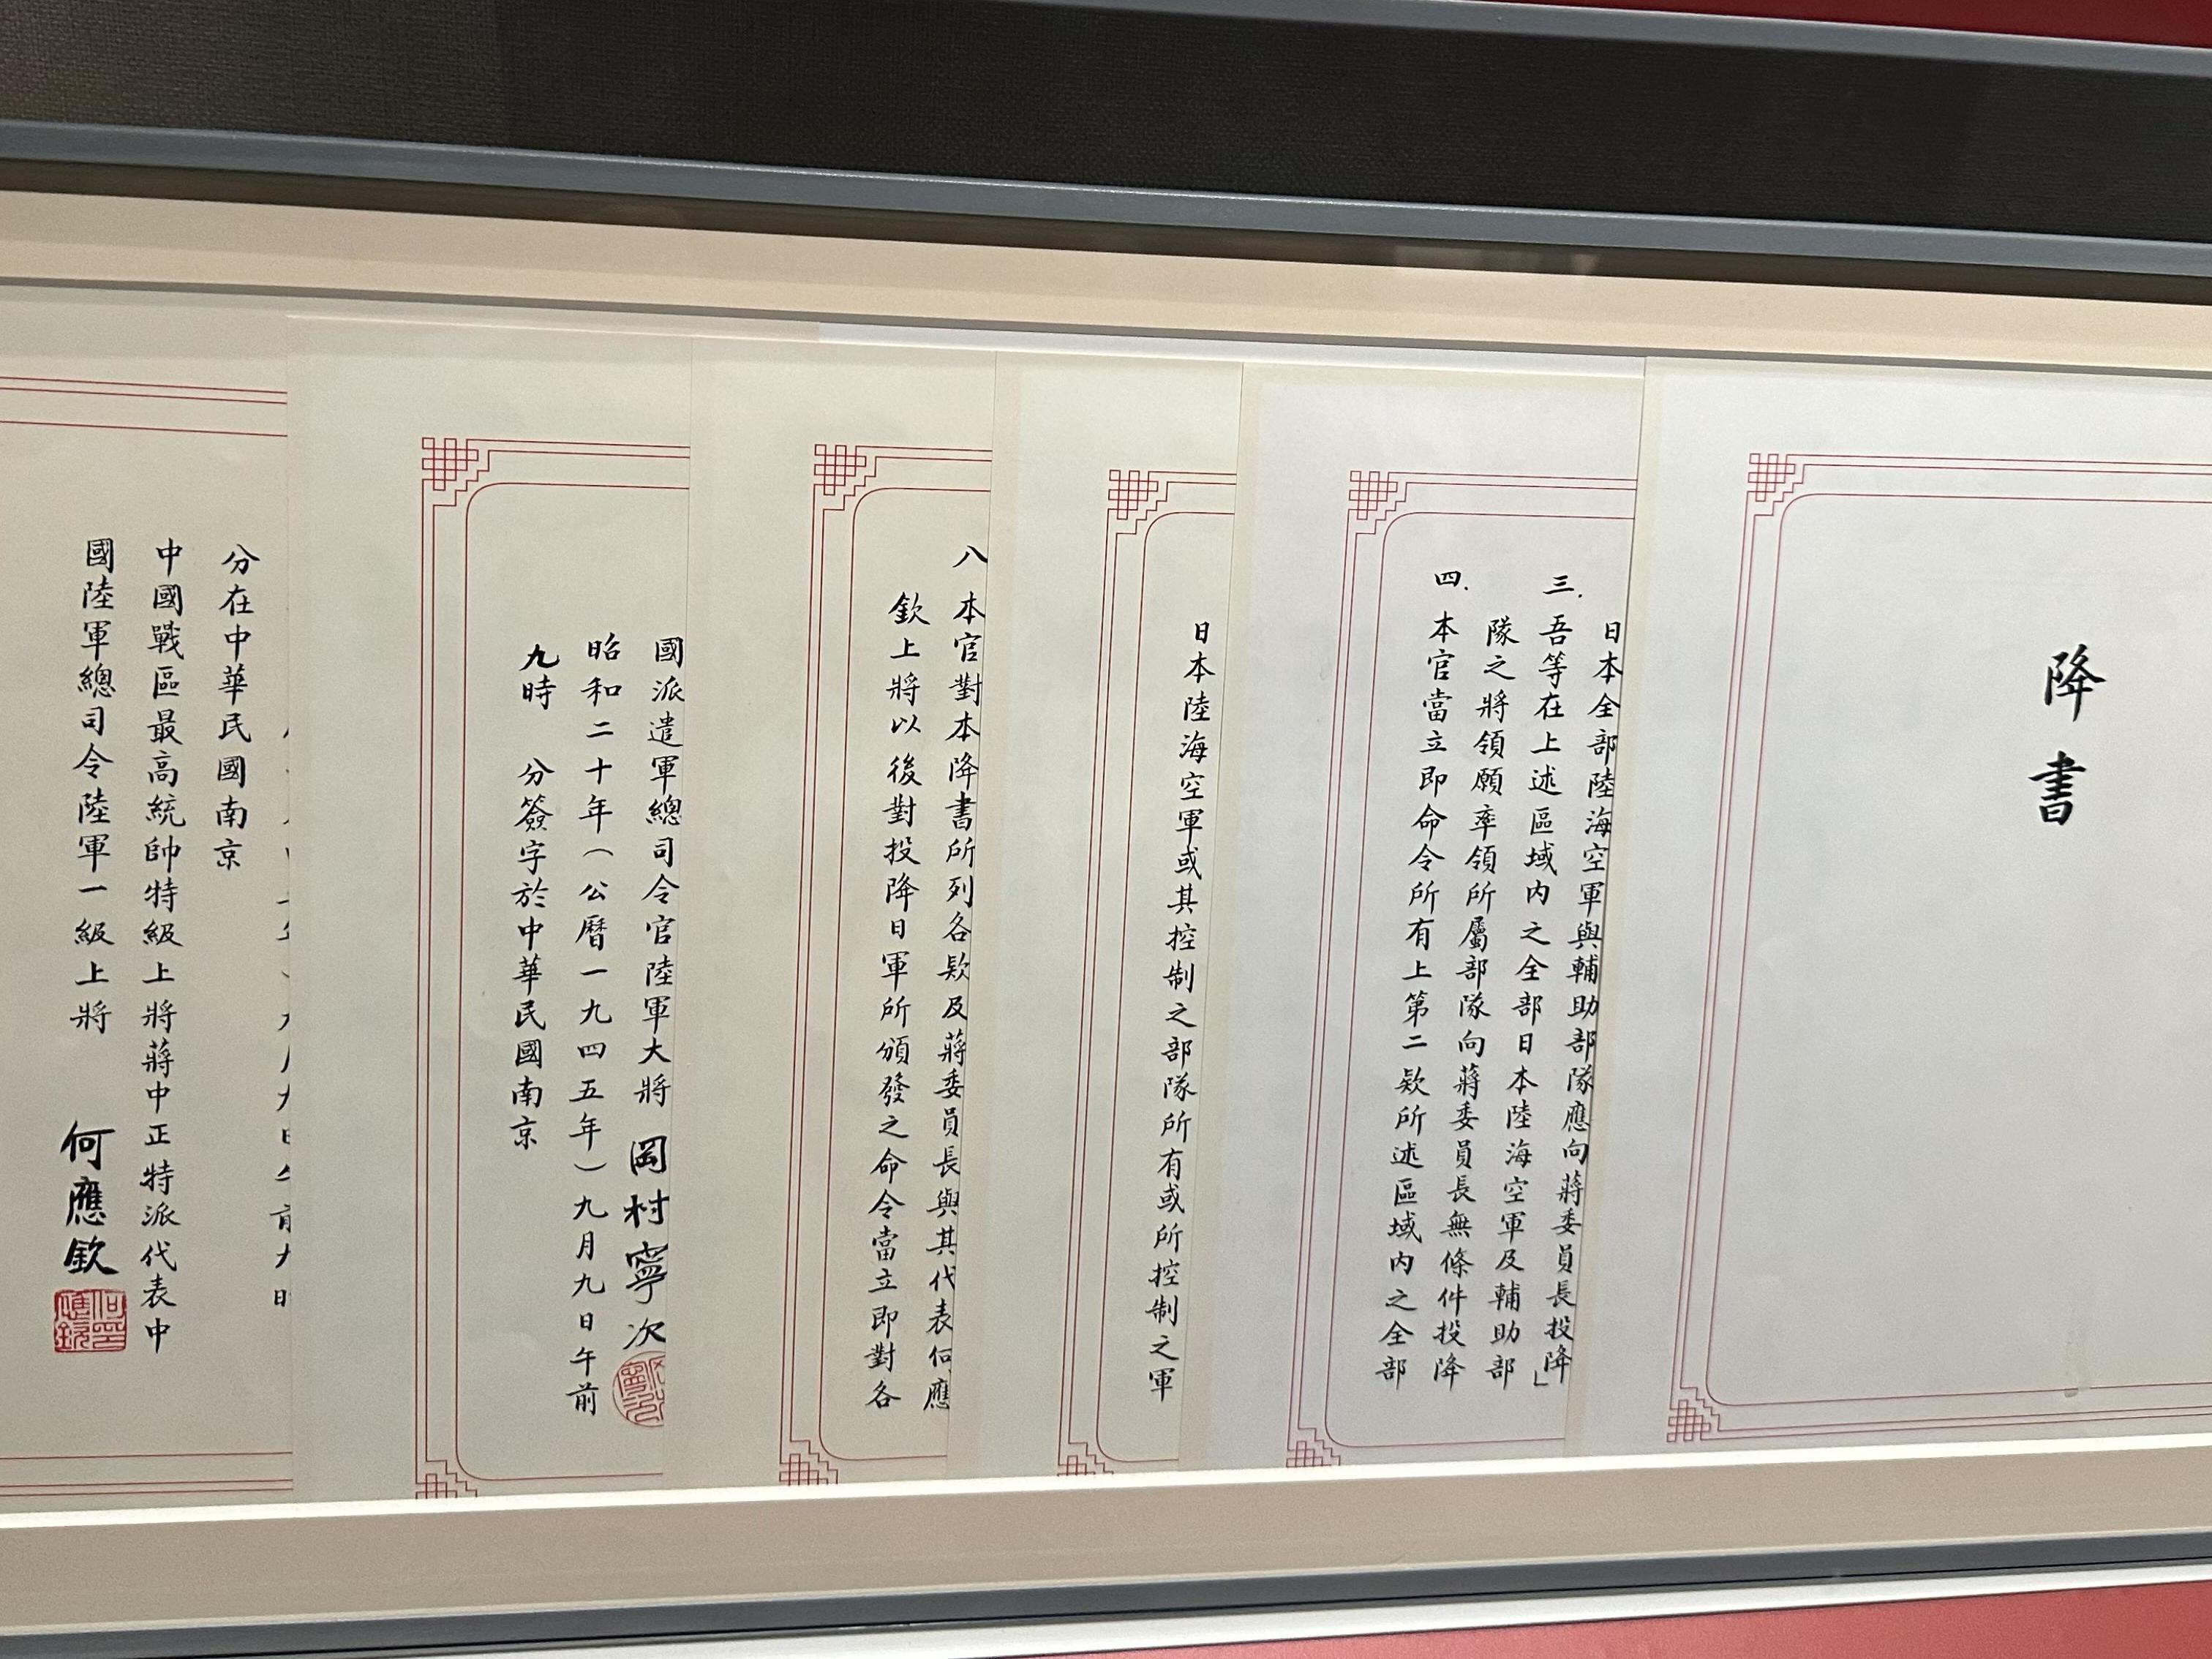 降書
日本全部陸海空軍與輔助部隊應向蔣委員長投降」
三.吾等在上述區域內之全部日本陸海空軍及輔助部
隊之將領願率領所屬部隊向蔣委員長無條件投降
四.本官當立即命令所有上第二欵所述區域內之全部
日本陸海空軍或其控制之部隊所有或所控制之軍
八本官對本降書所列各欵及蔣委員長與其代表何應
欽上將以後對投降日軍所頒發之命令當立即對各
國派遣軍總司令官陸軍大將 岡村寧次
昭和二十年(公曆一九四五年)九月九日午前
九時 分簽字於中華民國南京
分在中華民國南京
中國戰區最高統帥特級上將蔣中正特派代表中
國陸軍總司令陸軍一級上將 何應欽